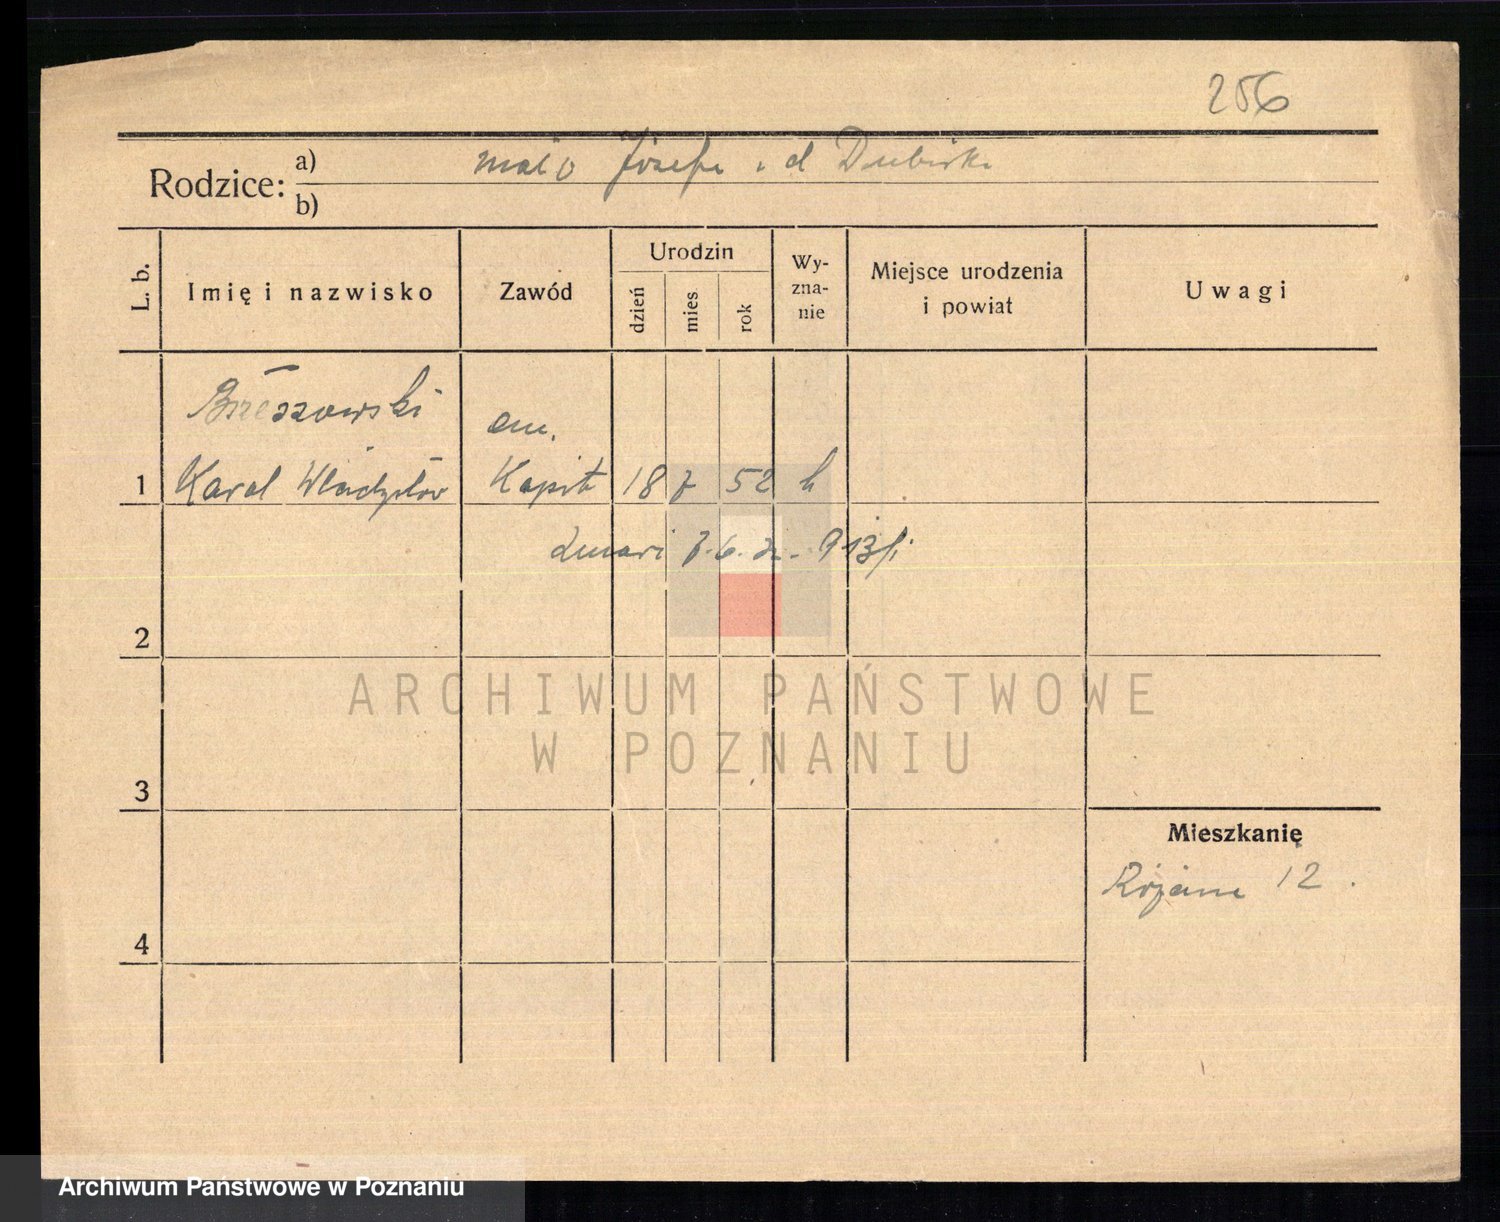 256
Rodzice: a) Józefa i d
b)
L. b.
Imię i nazwisko
Zawód
Urodzin
dzień
mies
rok
Wy-
zna-
nie
Miejsce urodzenia
i powiat
Uwagi
Brzeszowski
em.
1 Karol Władysław Kapit 18 7 52 k
zmarł 7.6.
2
ARCHIWUM PAŃSTWOWE
W POZNANIU
3
Mieszkanię
12.
4
Archiwum Państwowe w Poznaniu